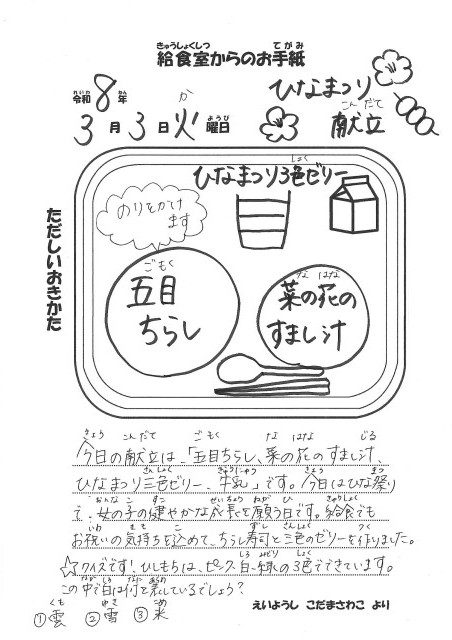 給食室からのお手紙
令和8年
3月3日火曜日
ひなまつり
献立
ただしいおきかた
ひなまつり3色ゼリー
のりをかけ
ます
五目
ちらし
菜の花の
すまし汁
今日の献立は、「五目ちらし、菜の花のすまし汁、
ひなまつり三色ゼリー、牛乳」です。今日はひな祭り
で、女の子の健やかな成長を願う日です。給食でも
お祝いの気持ちを込めて、ちらし寿司と三色のゼリーを作りました。
☆クイズです！ひしもちは、ピンク・白・緑の3色でできています。
この中で白は何を表しているでしょう？
①雲 ②雪 ③米
えいようし こだまさわこ より